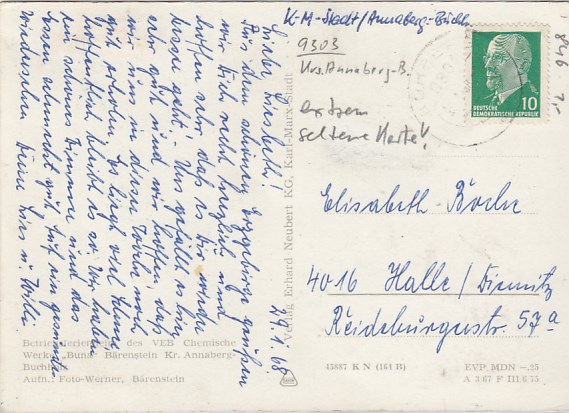 K-M-Stadt/Annaberg-Buchh.
9303
Krs. Annaberg-B.
extrem
seltene Karte!
8846 7,-
DEUTSCHE
DEMOKRATISCHE REPUBLIK
10
29.1.68
Liebe Liesbeth!
Aus dem schönen Erzgebirge grüßen
wir Dich recht herzlich und
hoffen sehr, daß es Dir wieder
besser geht. Uns gefällt es hier
sehr gut und wir hoffen, daß
wir uns in diesen Tagen noch
gut erholen. Es liegt viel Schnee
hoffentlich bleibt es so. Wir haben
ein schönes Zimmer und das
Essen schmeckt gut. Auf ein gesundes
Wiedersehen Deine Lies u. Willi.
Elisabeth Boche
4016 Halle / Diemitz
Reideburgerstr. 57a
Verlag Erhard Neubert KG, Karl-Marx-Stadt
Betriebsferienheim des VEB Chemische
Werke „Buna“ Bärenstein Kr. Annaberg-
Buchholz
Aufn.: Foto-Werner, Bärenstein
K N (164 B)
EVP MDN -.25
A 3 67 F III.6 75